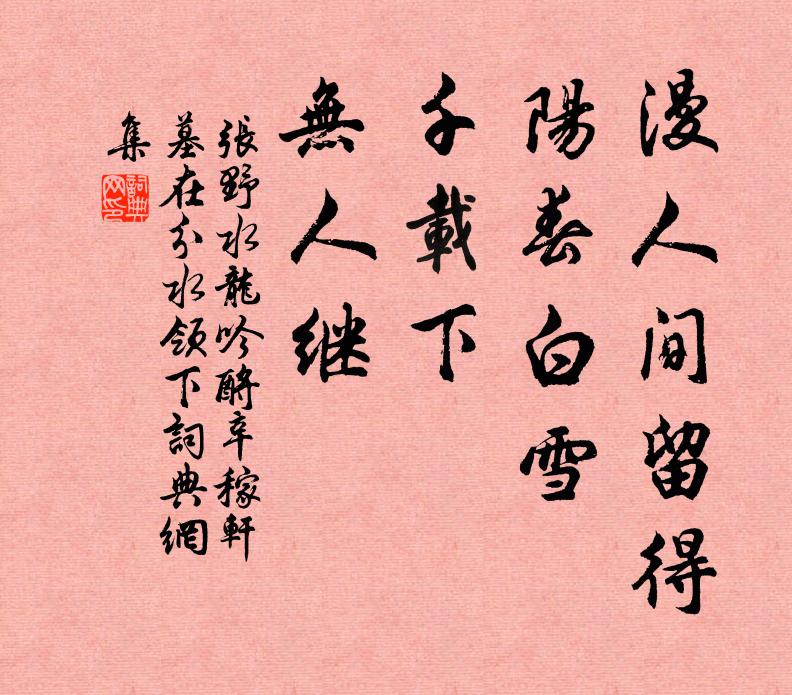 漫人间留得
陽春白雪
千載下
無人继
張野水龍吟酹辛稼軒
墓在分水領下詞典網
集
詞典
网印